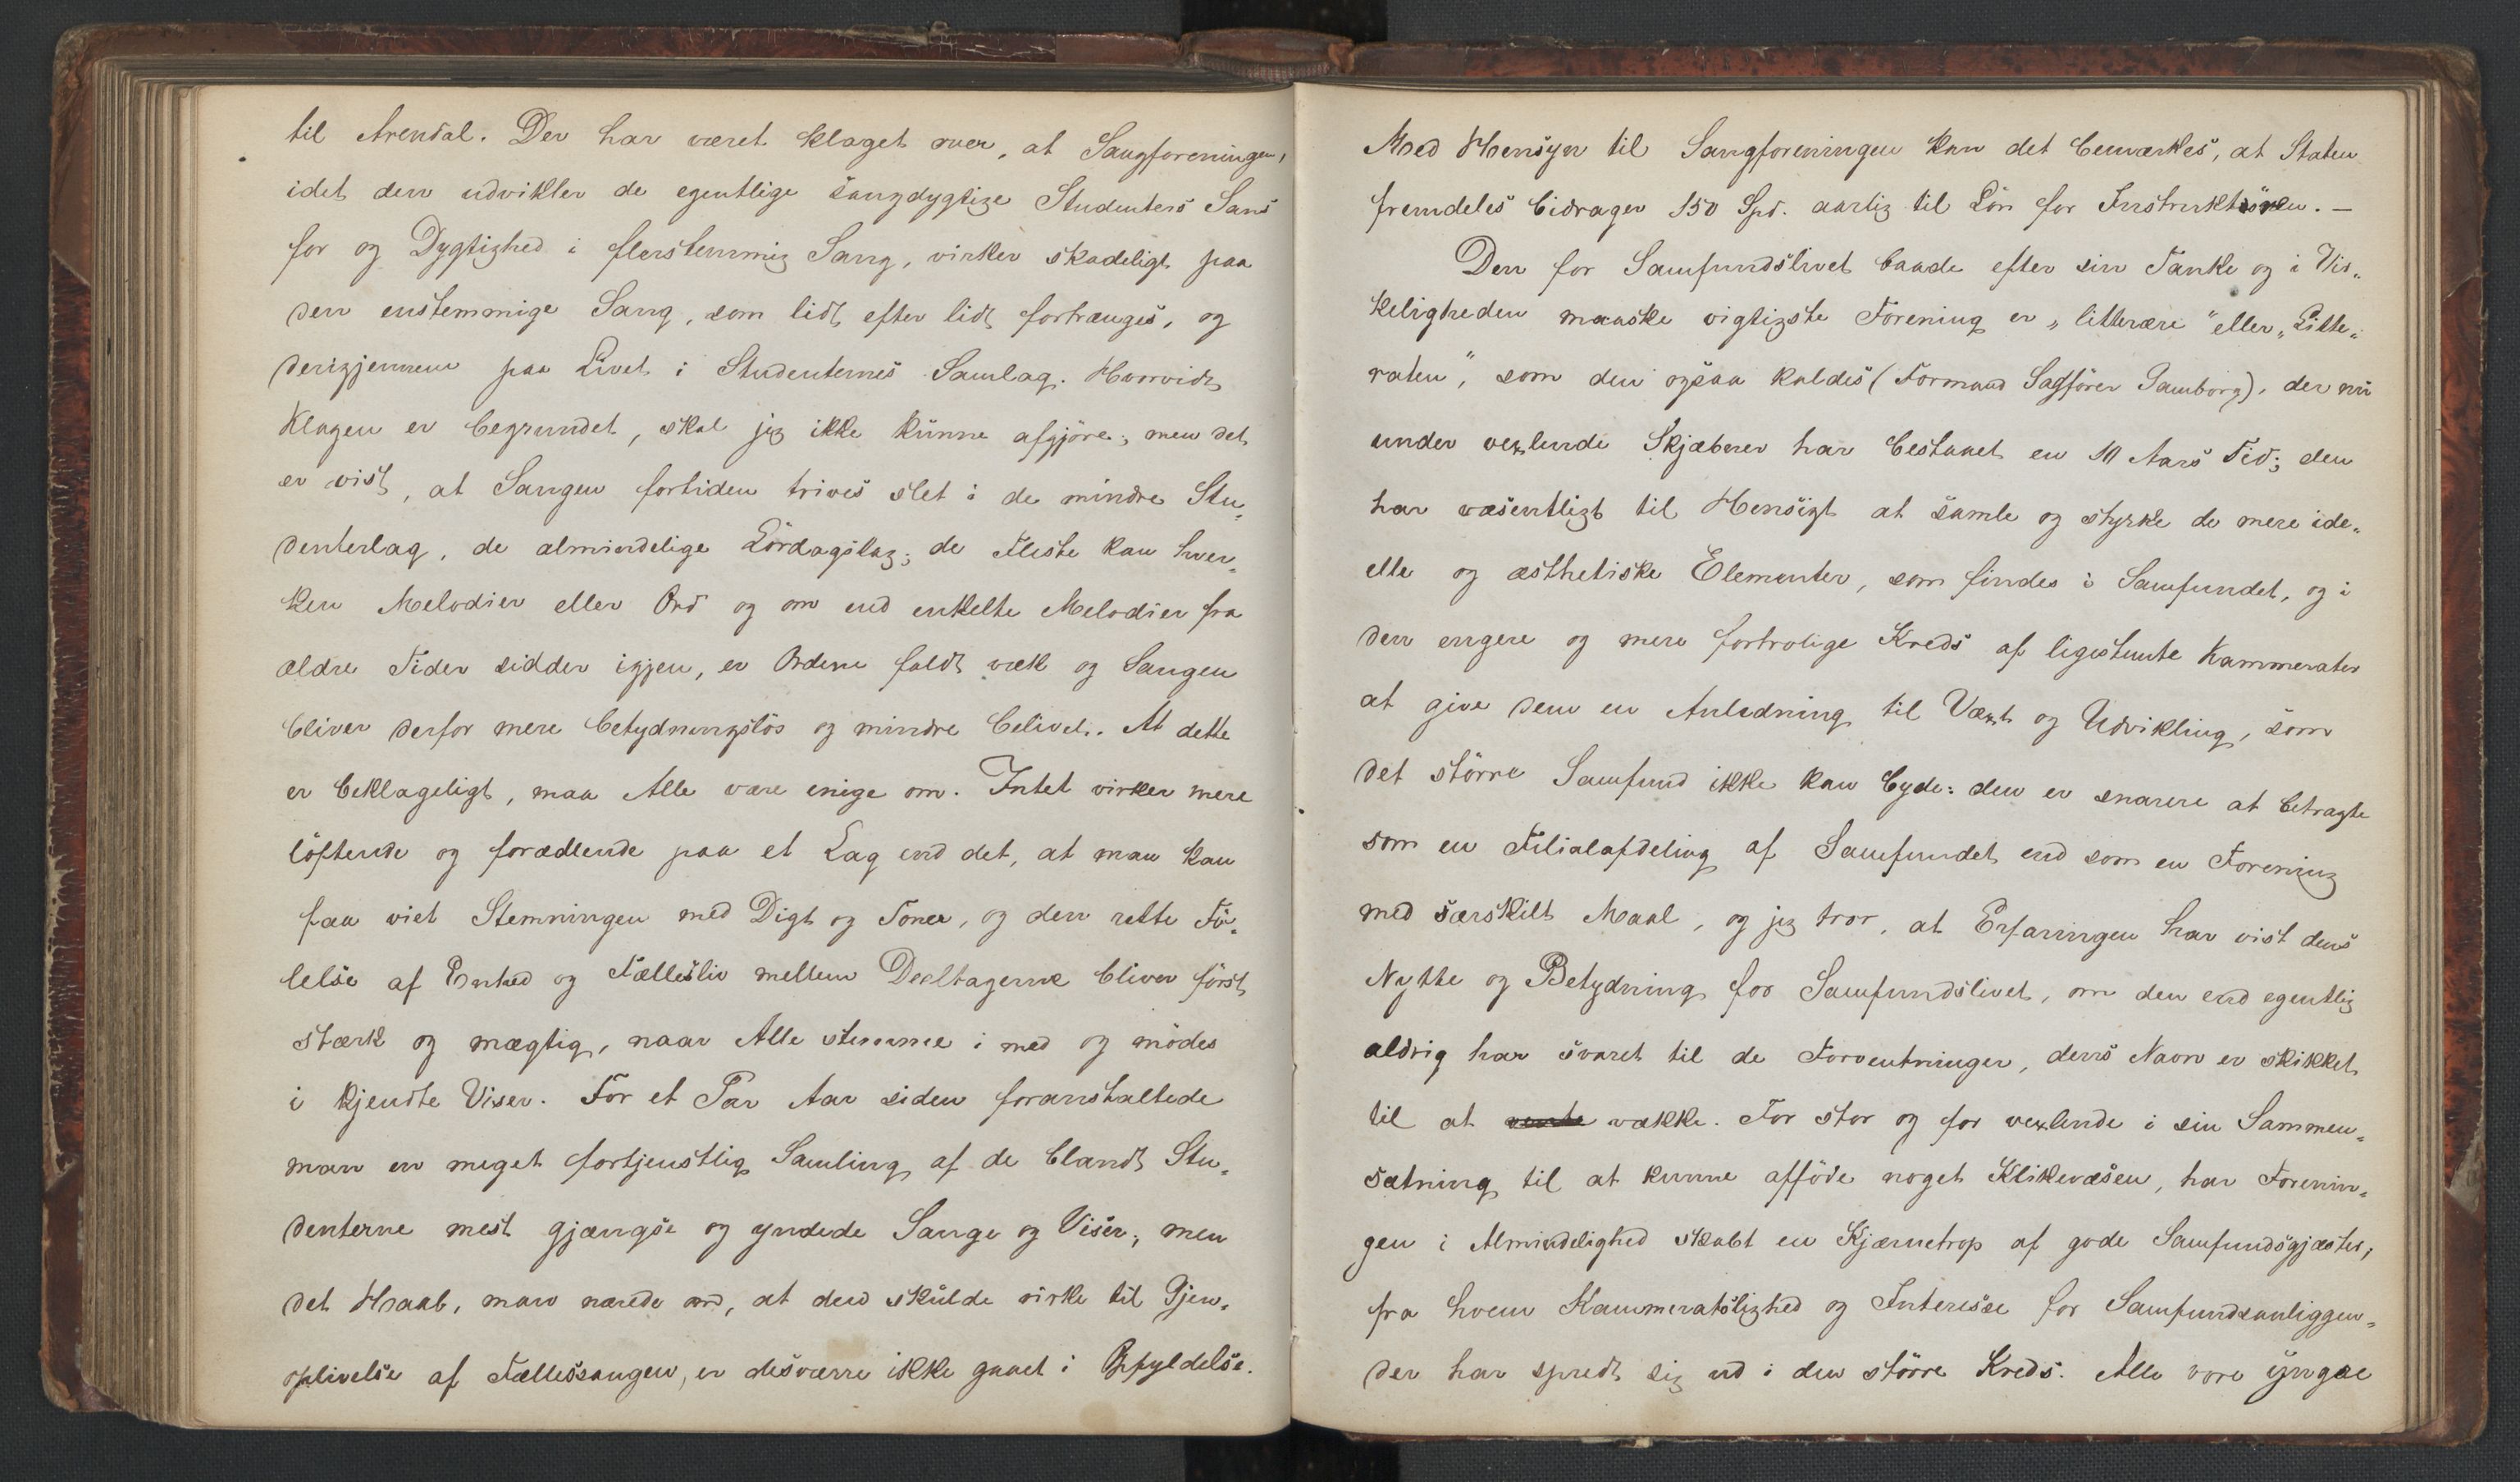 til Arendal. Der har været klaget over, at Sangforeningen,
idet den udvikler de egentlige sangdygtige Studenters Sans
for og Dygtighed i flerstemmig Sang, virker skadeligt paa
den enstemmige Sang, som lidt efter lidt fortrænges, og
derigjennem paa Livet i Studenternes Samlag. Hvorvidt
Klagen er begrundet, skal jeg ikke kunne afgjöre; men det
er vist, at Sangen fortiden trives slet i de mindre Stu-
denterlag, de almindelige Lördagslag; de Fleste kan hver-
ken Melodier eller Ord og om end enkelte Melodier fra
ældre Tider sidder igjen, er Ordene faldt væk og Sangen
bliver derfor mere betydningslös og mindre belivet. At dette
er beklageligt, maa Alle være enige om. Intet virker mere
löftende og forædlende paa et Lag end det, at man kan
faa viet Stemningen med Digt og Toner, og den rette Fö-
lelse af Enhed og Fællesliv mellem Deeltagerne bliver först
stærk og mægtig, naar Alle stemme i med og mödes
i kjendte Viser. For et Par Aar siden foranstaltede
man en meget fortjenstlig Samling af de blandt Stu-
denterne mest gjængse og yndede Sange og Viser; men
det Haab, man nærede om, at den skulde virke til Gjen-
oplivelse af Fællessangen, er desværre ikke gaaet i Opfyldelse.
Med Hensyn til Sangforeningen kan det bemærkes, at Staten
fremdeles bidrager 150 Spd. aarlig til Lön for Instruktören. —
Den for Samfundslivet baade efter sin Tanke og i Vir-
keligheden maaske vigtigste Forening er „litterære" eller „Litte-
raten", som den ogsaa kaldes (Formand Sagförer Tamborg), der nu
under vexlende Skjæbner har bestaaet en 10 Aars Tid; den
har væsentligt til Hensigt at samle og styrke de mere ide-
elle og æsthetiske Elementer, som findes i Samfundet, og i
den engere og mere fortrolige Kreds af ligestemte Kammerater
at give dem en Anledning til Væxt og Udvikling, som
det större Samfund ikke kan byde: den er snarere at betragte
som en Filialafdeling af Samfundet end som en Forening
med særskilt Maal, og jeg tror, at Erfaringen har vist dens
Nytte og Betydning for Samfundslivet, om den end egentlig
aldrig har svaret til de Forventninger, dens Navn er skikket
til at vække. For stor og for vexlende i sin Sammen-
sætning til at kunne afföde noget Klikevæsen, har Forenin-
gen i Almindelighed skabt en Kjærnetrop af gode Samfundsgjæster,
fra hvem Kammeratslighed og Interesse for Samfundsanliggen-
der har spredt sig ud i den större Kreds. Alle vore yngre